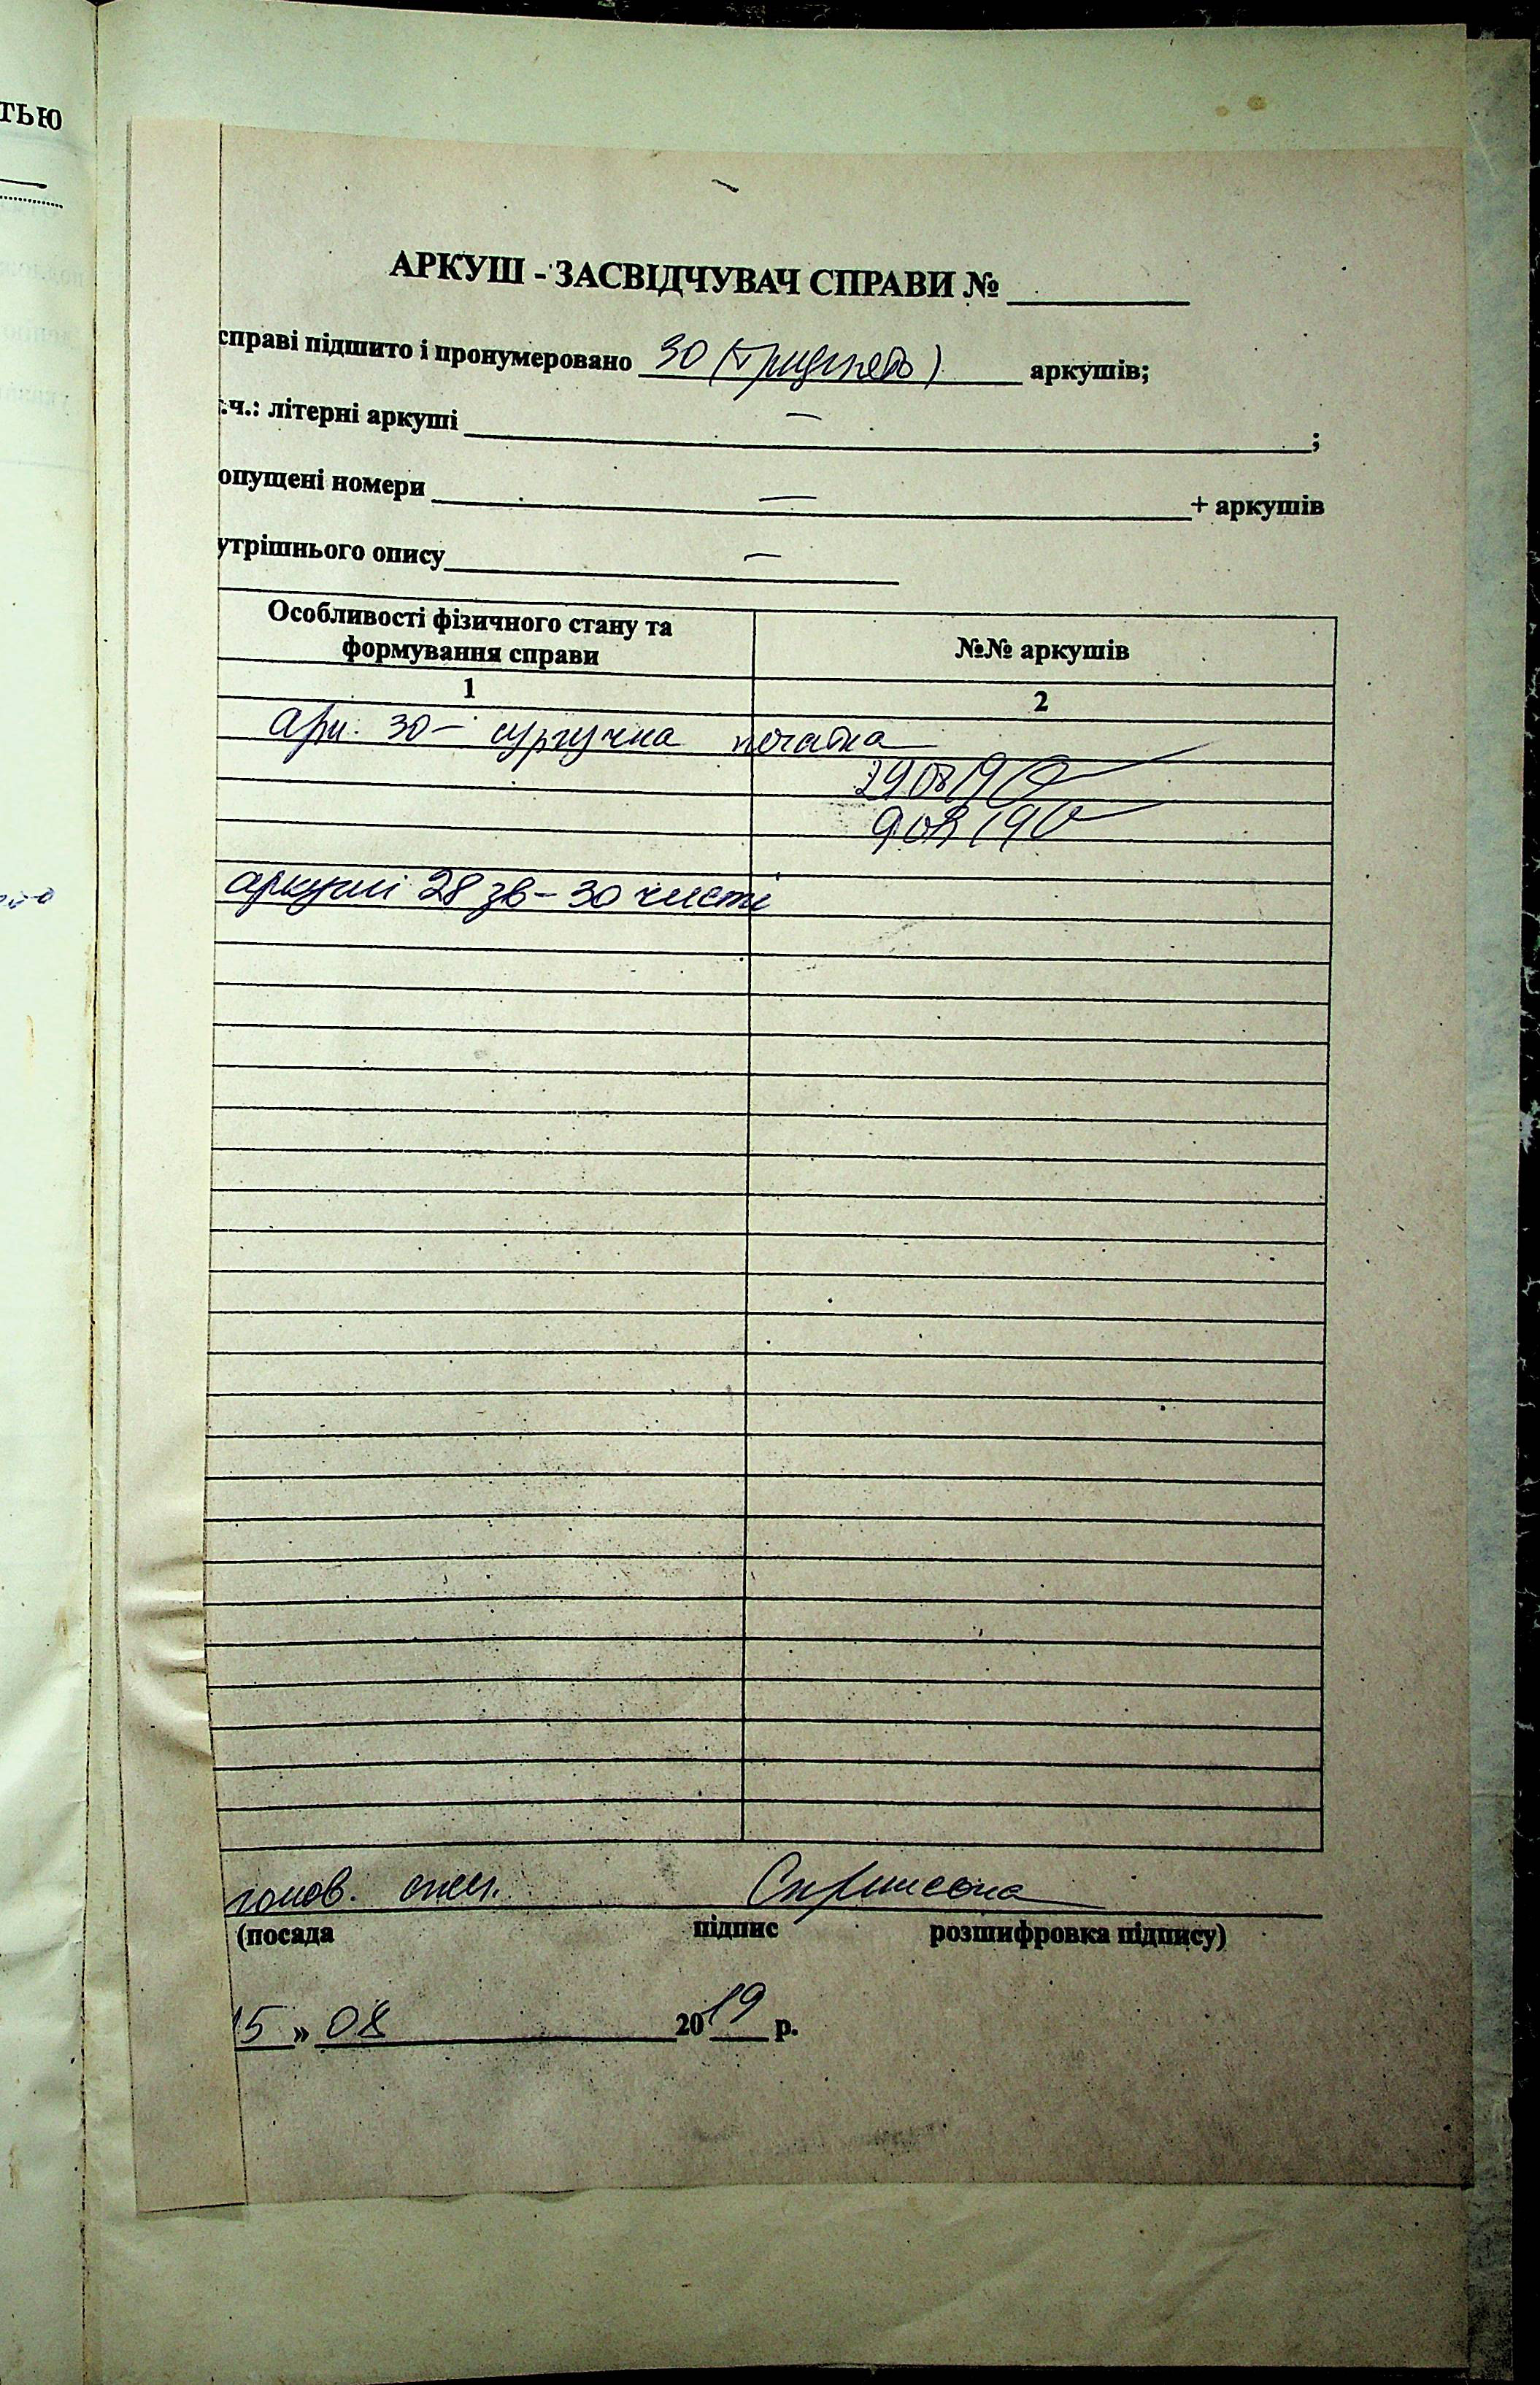 тью
АРКУШ - ЗАСВІДЧУВАЧ СПРАВИ № ________
справі підшито і пронумеровано 30 (тридцять) аркушів;
.ч.: літерні аркуші — ;
опущені номери — + аркушів
утрішнього опису —
Особливості фізичного стану та формування справи
№№ аркушів
1
2
арк. 30 – сургучна печатка
аркуші 28 зв – 30 чисті
голов. спец.
(посада підпис розшифровка підпису)
15 » 08 2019 р.